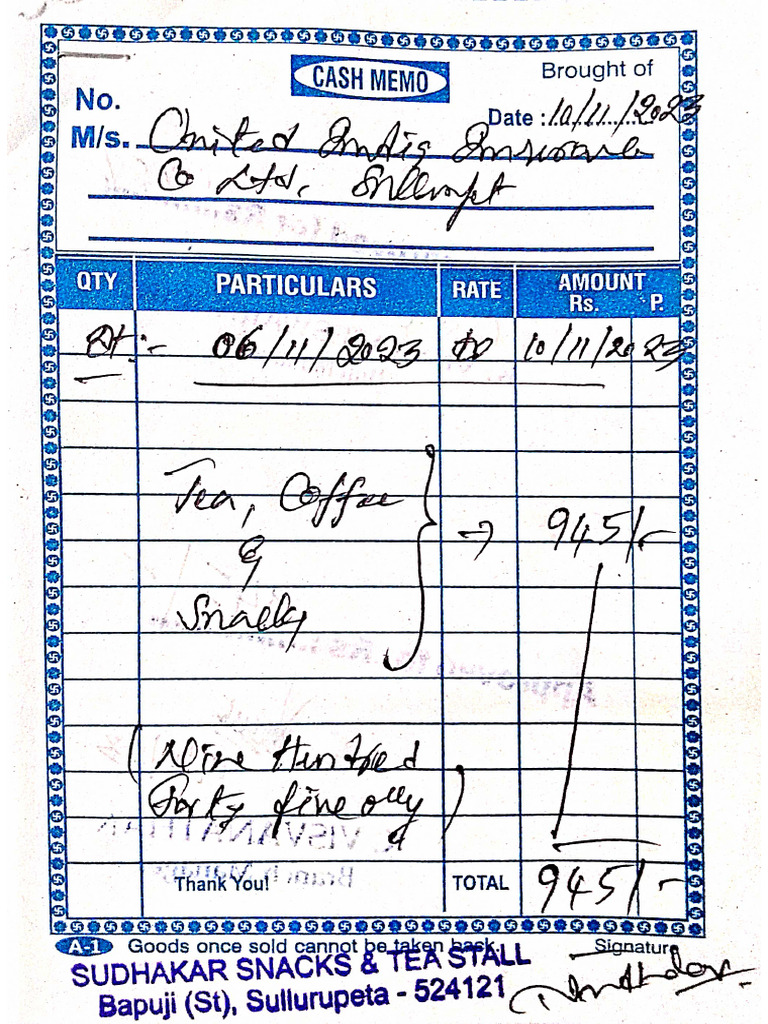 CASH MEMO
Brought of
No.
Date : 10/11/2023
M/s. United India Insurance
Co Ltd. Sullurpet
QTY PARTICULARS RATE AMOUNT
Rs. P.
Dt:- 06/11/2023 to 10/11/2023
Tea, Coffee
&
Snacks
→ 945/-
(Nine Hundred
Forty five only)
Thank You! TOTAL 945/-
A-1 Goods once sold cannot be taken back. Signature
SUDHAKAR SNACKS & TEA STALL
Bapuji (St), Sullurupeta - 524121